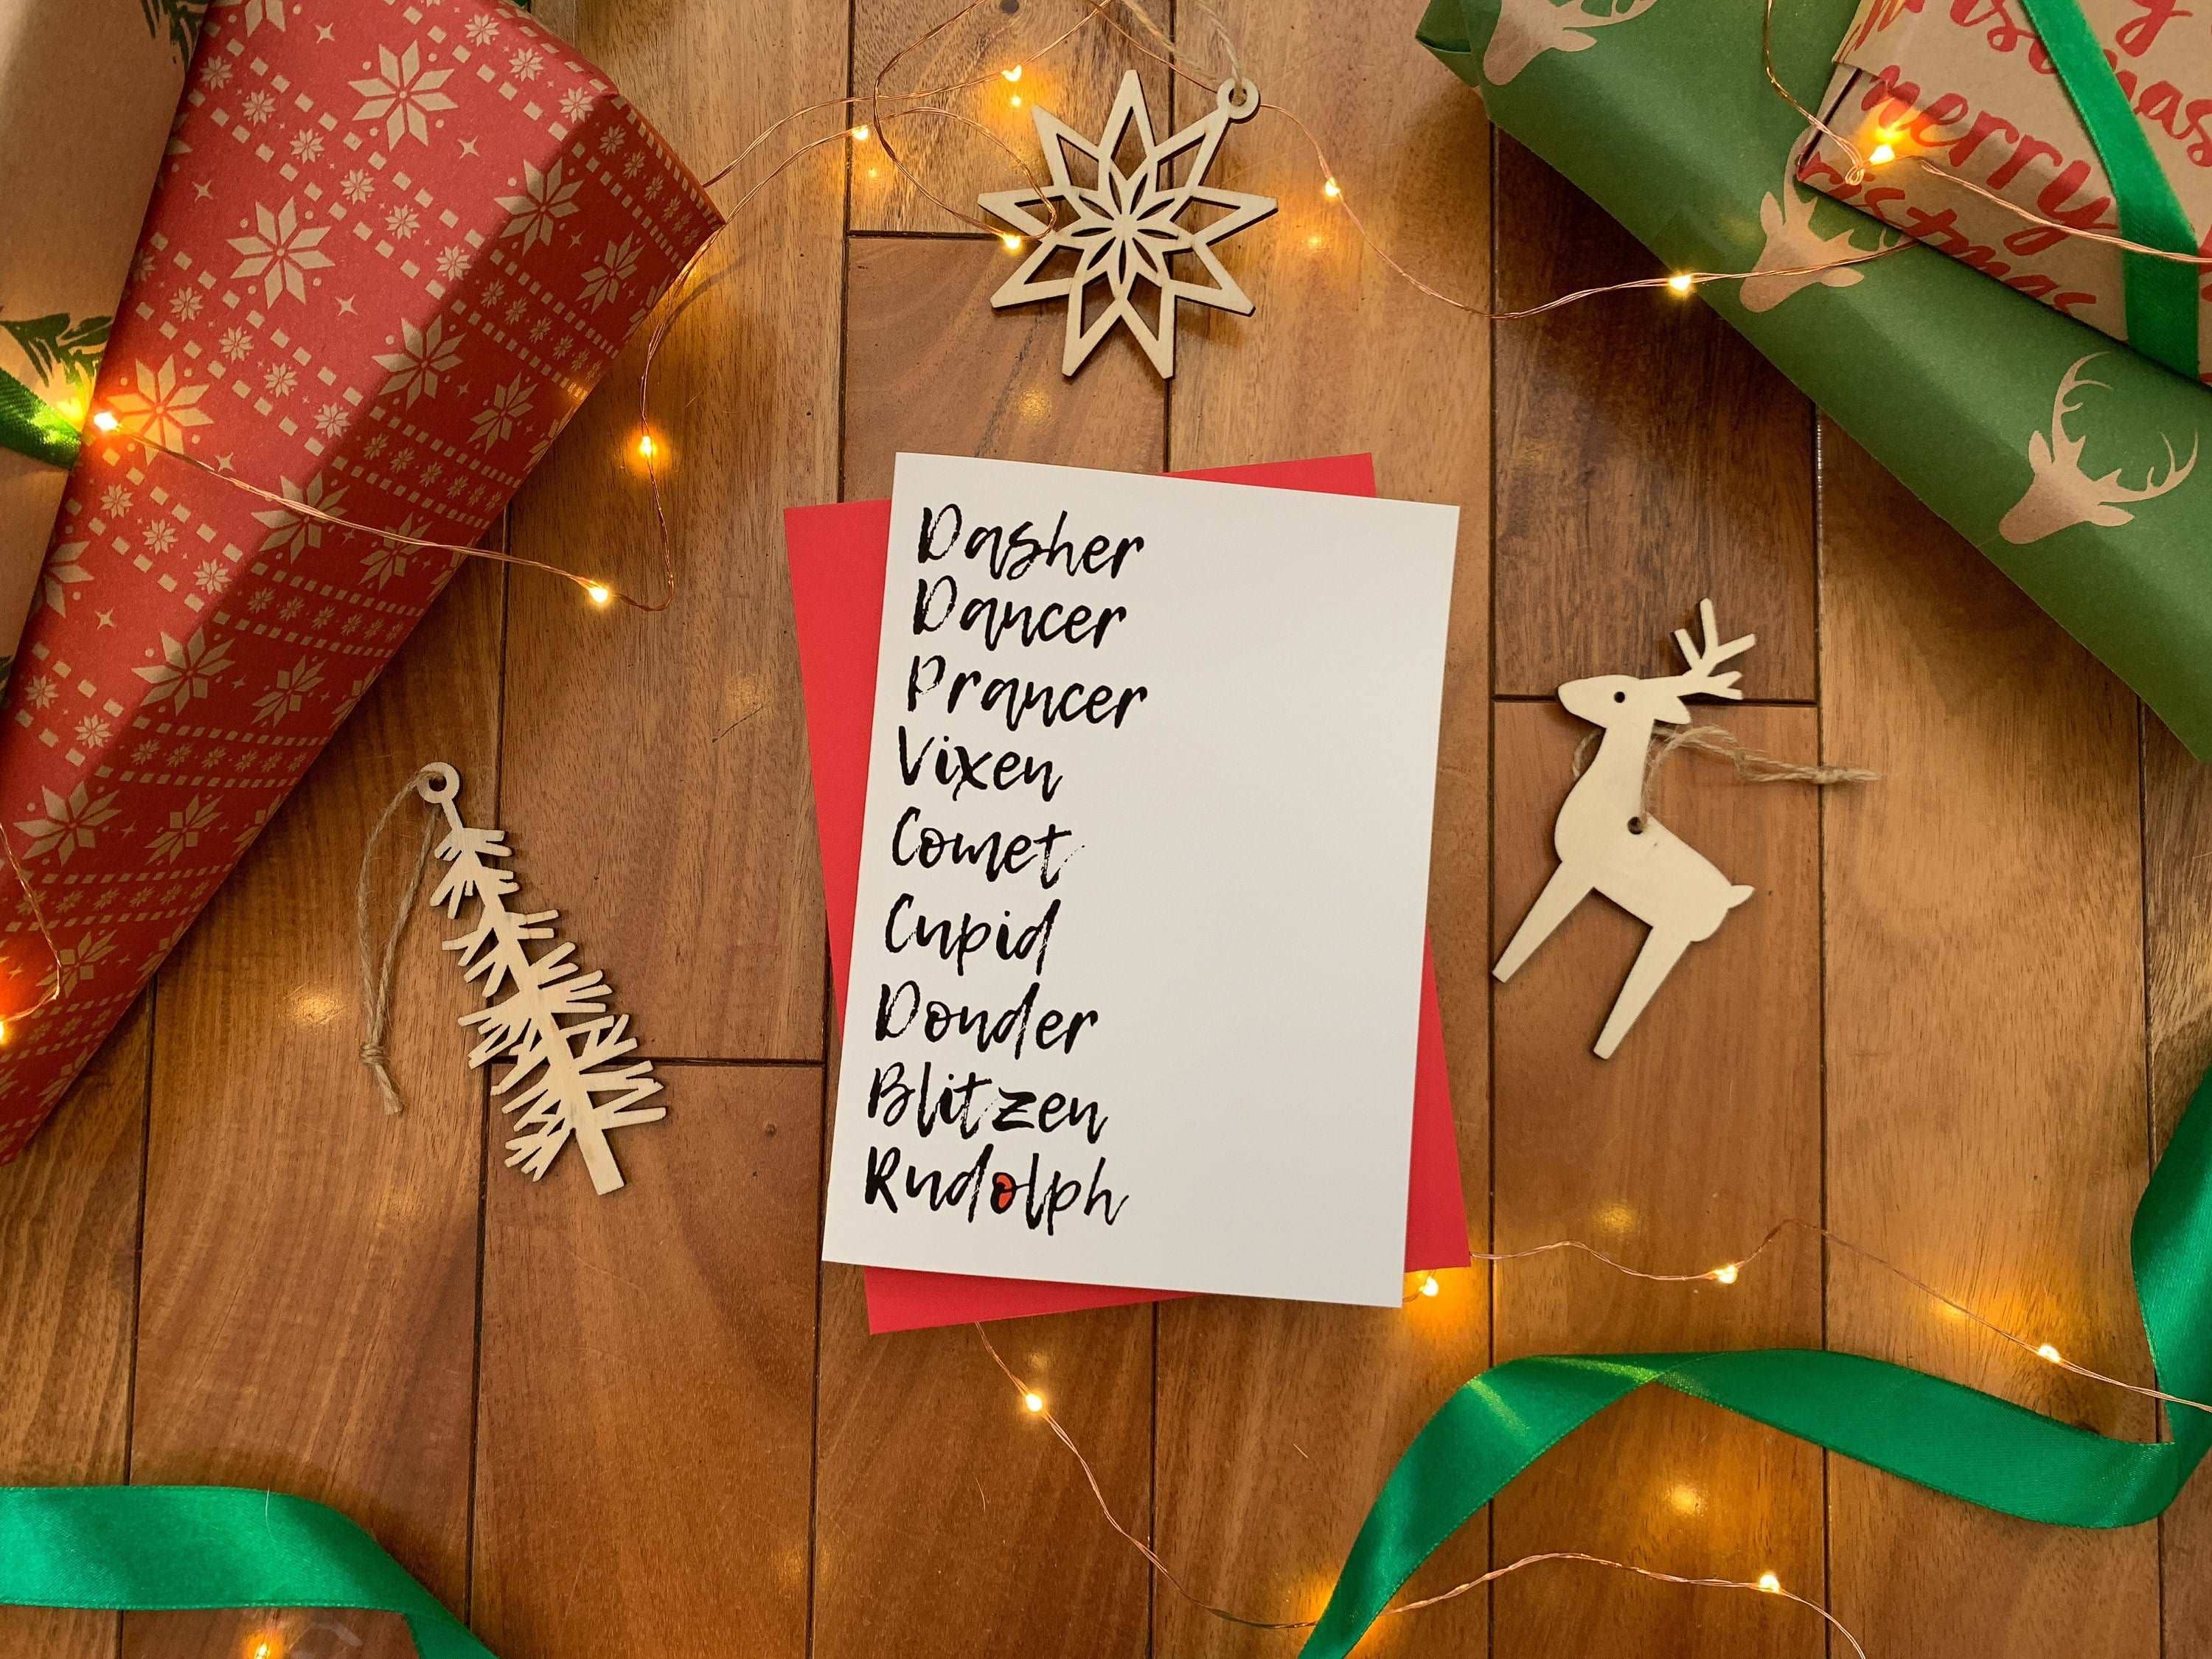 Dasher
Dancer
Prancer
Vixen
Comet
Cupid
Donder
Blitzen
Rudolph
merry